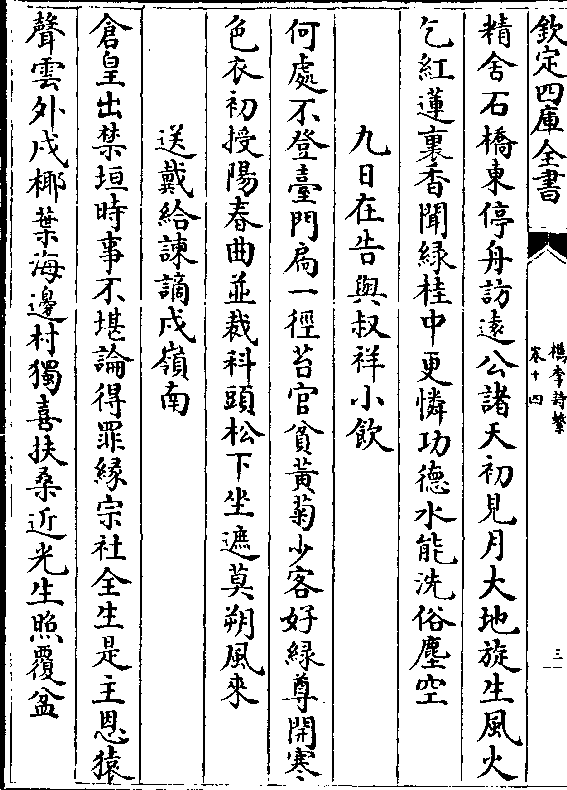 欽定四庫全書
檇李詩繫
卷十四
三
精舍石橋東停舟訪遠公諸天初見月大地旋生風火
乞紅蓮裏香聞緑桂中更憐功德水能洗俗塵空
九日在告與叔祥小飲
何處不登臺門扄一徑苔官貧黃菊少客好緑尊開寒
色衣初授陽春曲並裁科頭松下坐遮莫朔風來
送戴給諫謫戍嶺南
倉皇出禁垣時事不堪論得罪緣宗社全生是主恩猿
聲雲外戍椰葉海邊村獨喜扶桑近光生照覆盆